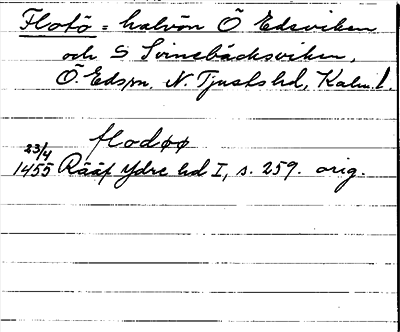 Flotö = halvön Ö Edsviken
och S Svinebäcksviken,
Ö. Eds sn. N. Tjusts hd, Kalm. l.
flodøø
23/4
1455 Rääf Ydre hd I, s. 259. orig.